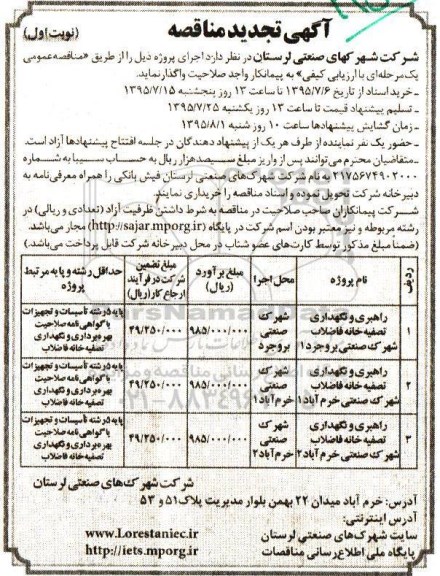 آگهی تجدید مناقصه
(نوبت اول)
شرکت شهرکهای صنعتی لرستان در نظر دارد اجرای پروژه ذیل را از طریق «مناقصه عمومی
یک مرحله‌ای با ارزیابی کیفی» به پیمانکار واجد صلاحیت واگذار نماید.
- خرید اسناد از تاریخ ۱۳۹۵/۷/۶ تا ساعت ۱۳ روز پنجشنبه ۱۳۹۵/۷/۱۵
- تسلیم پیشنهاد قیمت تا ساعت ۱۳ روز یکشنبه ۱۳۹۵/۷/۲۵
- زمان گشایش پیشنهادها ساعت ۱۰ روز شنبه ۱۳۹۵/۸/۱
- حضور یک نفر نماینده از طرف هر یک از پیشنهاد دهندگان در جلسه افتتاح پیشنهادها آزاد است.
- متقاضیان محترم می‌توانند پس از واریز مبلغ سیصدهزار ریال به حساب سیبا به شماره
۲۱۷۵۶۷۴۹۰۲۰۰۰ به نام شرکت شهرک‌های صنعتی لرستان فیش بانکی را همراه معرفی‌نامه به
دبیرخانه شرکت تحویل نموده و اسناد مناقصه را خریداری نمایند.
شرکت پیمانکاران صاحب صلاحیت در مناقصه به شرط داشتن ظرفیت آزاد (تعدادی و ریالی) در
رشته مربوطه و نیز معتبر بودن اسم شرکت در پایگاه (http://sajar.mporg.ir) مجاز می‌باشد.
(ضمنا مبلغ مذکور توسط کارت‌های عضو شتاب در محل دبیرخانه شرکت قابل پرداخت می‌باشد.)
ردیف نام پروژه محل اجرا مبلغ برآورد (ریال) مبلغ تضمین شرکت در فرآیند ارجاع کار (ریال) حداقل رشته و پایه مرتبط پروژه
۱ راهبری و نگهداری تصفیه خانه فاضلاب شهرک صنعتی بروجرد۱ شهرک صنعتی بروجرد ۹۸۵/۰۰۰/۰۰۰ ۴۹/۲۵۰/۰۰۰ پایه ۵ رشته تأسیسات و تجهیزات یا گواهی نامه صلاحیت بهره‌برداری و نگهداری تصفیه خانه فاضلاب
۲ راهبری و نگهداری تصفیه خانه فاضلاب شهرک صنعتی خرم‌آباد۱ شهرک صنعتی خرم‌آباد۱ ۹۸۵/۰۰۰/۰۰۰ ۴۹/۲۵۰/۰۰۰ پایه ۵ رشته تأسیسات و تجهیزات یا گواهی نامه صلاحیت بهره‌برداری و نگهداری تصفیه خانه فاضلاب
۳ راهبری و نگهداری تصفیه خانه فاضلاب شهرک صنعتی خرم‌آباد۲ شهرک صنعتی خرم‌آباد۲ ۹۸۵/۰۰۰/۰۰۰ ۴۹/۲۵۰/۰۰۰ پایه ۵ رشته تأسیسات و تجهیزات یا گواهی نامه صلاحیت بهره‌برداری و نگهداری تصفیه خانه فاضلاب
شرکت شهرک‌های صنعتی لرستان
آدرس: خرم آباد میدان ۲۲ بهمن بلوار مدیریت پلاک ۵۱ و ۵۳
آدرس اینترنتی:
سایت شهرک‌های صنعتی لرستان www.Lorestaniec.ir
پایگاه ملی اطلاع رسانی مناقصات http://iets.mporg.ir